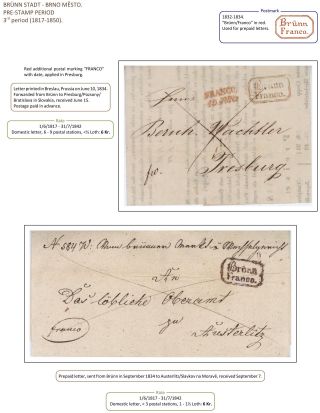 BRÜNN STADT - BRNO MĚSTO.
PRE-STAMP PERIOD
3rd period (1817-1850).
Postmark
1832-1834.
"Brünn/Franco" in red.
Used for prepaid letters.
Brünn
Franco.
Red additional postal marking "FRANCO"
with date, applied in Presburg.
Letter printed in Breslau, Prussia on June 10, 1834.
Forwarded from Brünn to Presburg/Pozsony/
Bratislava in Slovakia, received June 15.
Postage paid in advance.
Rate
1/6/1817 - 31/7/1842
Domestic letter, 6 - 9 postal stations, <½ Loth: 6 Kr.
FRANCO.
Brünn
Franco.
Herrn
Bernh. Wachtler
fr.
Presburg
Brünn
Franco.
An
Das löbliche Oberamt
zu
franco
Austerlitz
Prepaid letter, sent from Brünn in September 1834 to Austerlitz/Slavkov na Moravě, received September 7.
Rate
1/6/1817 - 31/7/1842
Domestic letter, < 3 postal stations, 1 - 1½ Loth: 6 Kr.